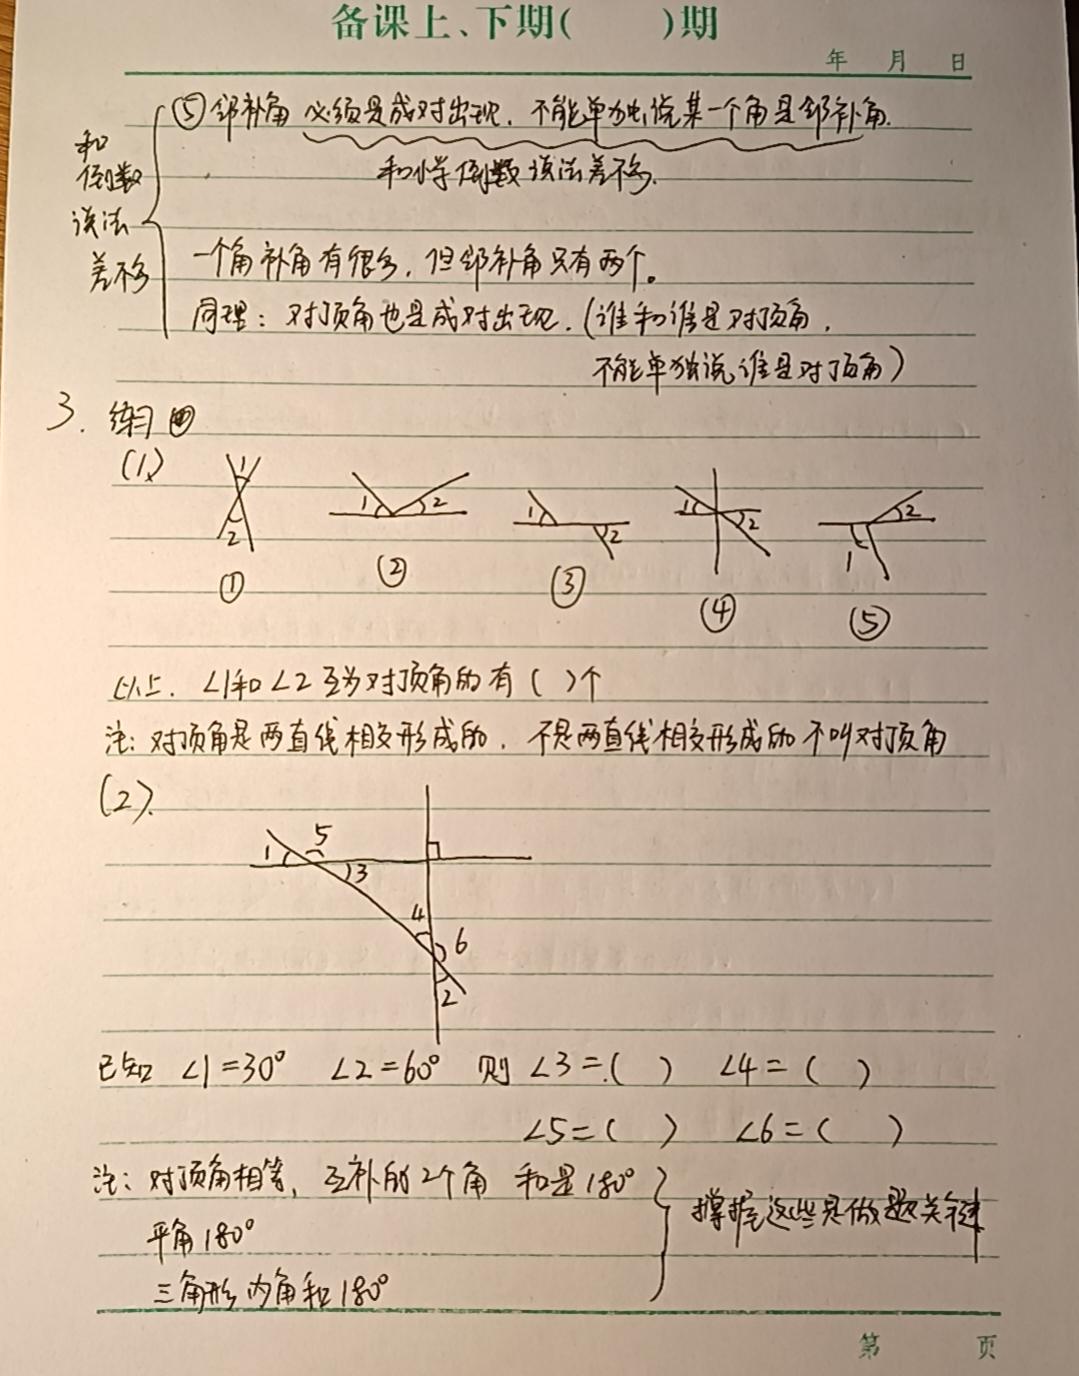 备课上、下期(　　)期
年　月　日
⑤邻补角必须是成对出现．不能单独说某一个角是邻补角.
和小学倒数说法差不多.
和
倒数
说法
差不多
一个角补角有很多，但邻补角只有两个。
同理：对顶角也是成对出现．(谁和谁是对顶角，
不能单独说谁是对顶角)
3．练习
(1)
1 2 1 2 1 2 1 2 1 2
① ② ③ ④ ⑤
以上．∠1和∠2互为对顶角的有(　)个
注：对顶角是两直线相交形成的．不是两直线相交形成的不叫对顶角
(2).
1 5 3
4 6
2
已知 ∠1=30° ∠2=60° 则 ∠3=(　) ∠4=(　)
∠5=(　) ∠6=(　)
注：对顶角相等，互补的2个角 和是180°
平角180°
三角形内角和180°
掌握这些是做题关键
第　　页